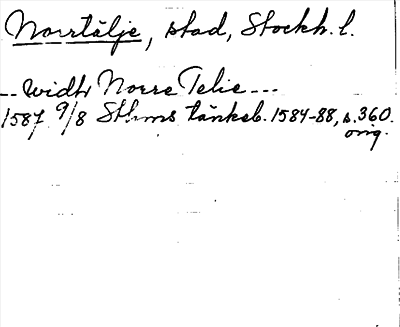 Norrtälje, stad, Stockh. l.
-- widh Norre Telie ---
1587 9/8 Sthms tänkeb. 1584-88, s. 360.
orig.